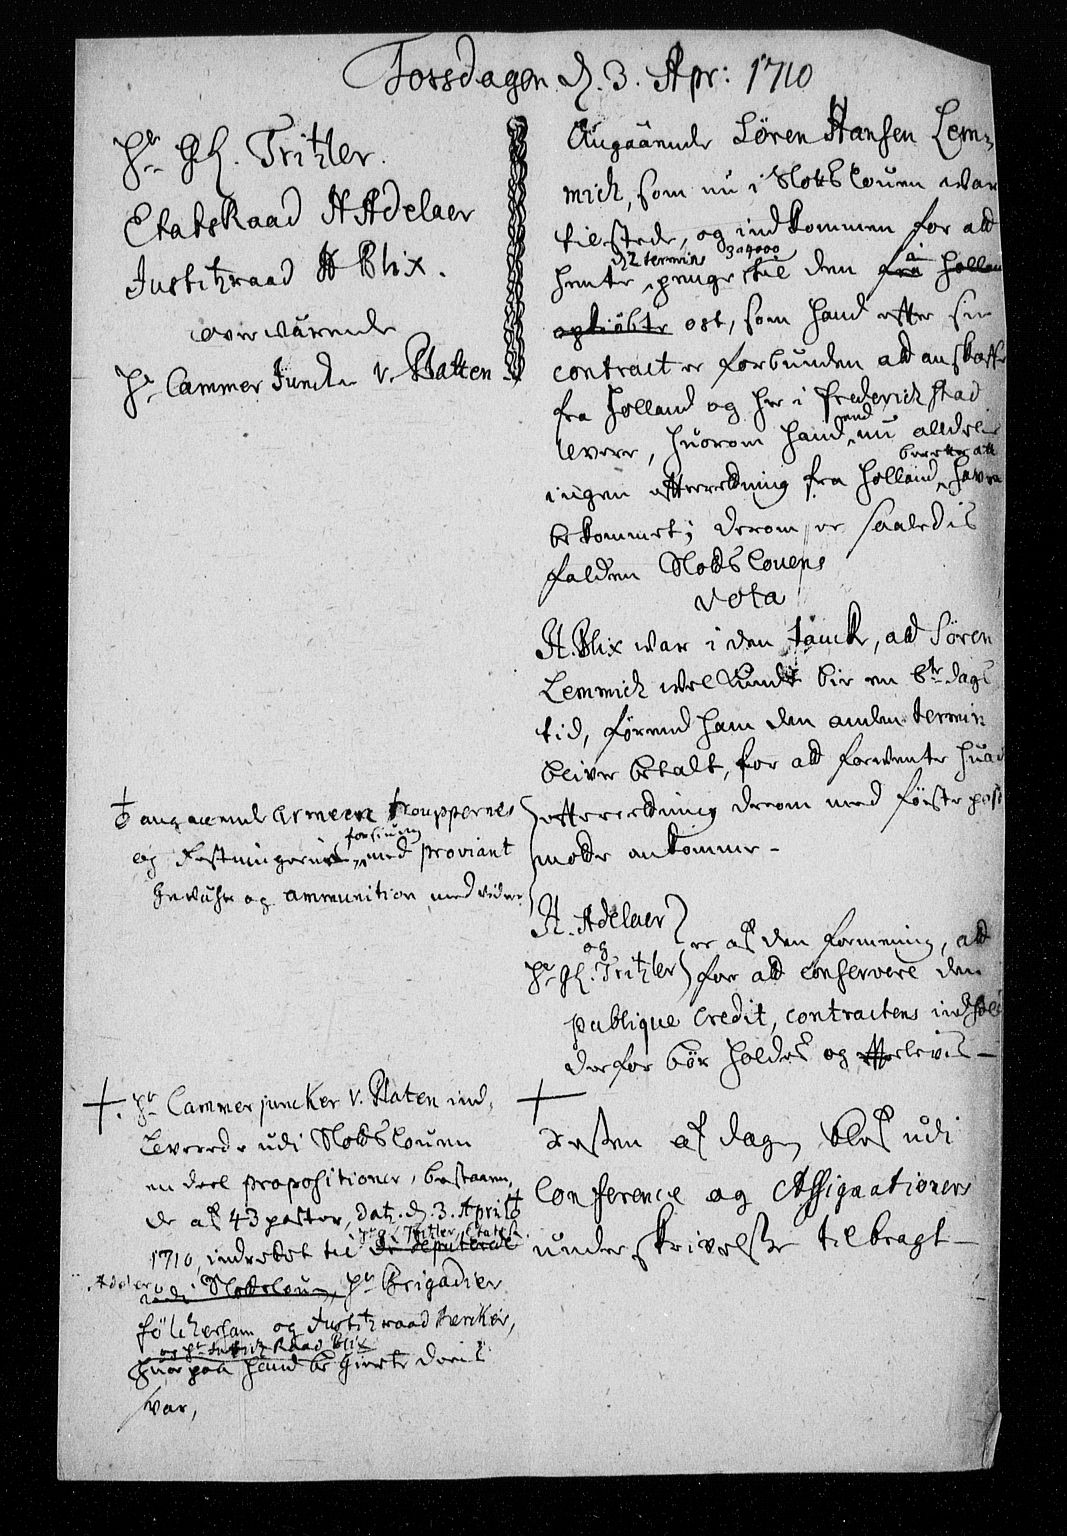 Torsdagen d. 3. Apr: 1710
Hr. GH. Tritzler.
Etatsraad H Adelaer
Justitzraad H Blix.
overwærende
Hr Cammer Juncker V. Platten
Angaaende Søren Hansen Lem-
mich, som nu i Slotsloven war
tilstede, og indkommen for att
d 2 termins
hente penge til den fra Hollan
opkiøbte ost, som hand efter sin
contract er forbunden att anskaffe
fra Holland og her i Frederichstad
levere, huorom hand end nu alldelis
berette att
ingen efterretning fra Holland, hafve
bekommet; derom er saaledis
falden Slotslovens
vota
H. Blix war i den tancke, att Søren
Lemmich wel kunde bie en 6te dags
tid, førend ham den anden termin
bliver betalt, for att forvente huad
efterretning derom med første post
motte ankomme -
H. Adelaer
og
Hr GH. Tritzler
er af den formening, att
for att conservere den
publique Credit, contractens indhold
derfor bør holdes og efterlevis -
angaaende Armeen trouppernes
og Festningernes forsiuning med proviant
gevehr og ammunition med videre
Hr Cammerjuncker V. Platen ind-
leverede udi Slotsloven
en deel propositioner, bestaaen-
de af 43 poster, dat. d. 3. Aprilis
Hr G. Tritler, Etatsr.
1710, indrettet til de deputerede
Adeler
udi Slotsloven, Hr Brigadier
Følckersam og Justitzraad Hercker,
og Hr Justitz Raad Blix
huorpaa hand begierte deris
svar,
Resten af dagen blef udi
Conference og Assignationers
underskrivelse tilbragt -